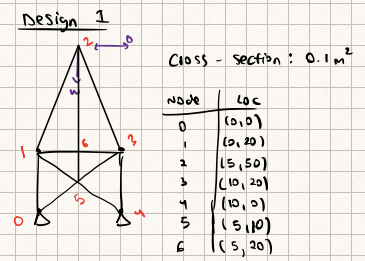 Design 1
2
D
W
Cross - section : 0.1 m²
Node Loc
0 (0,0)
1 (0,20)
2 (5,50)
3 (10,20)
4 (10,0)
5 (5,10)
6 (5,20)
1 6 3
5
0 4